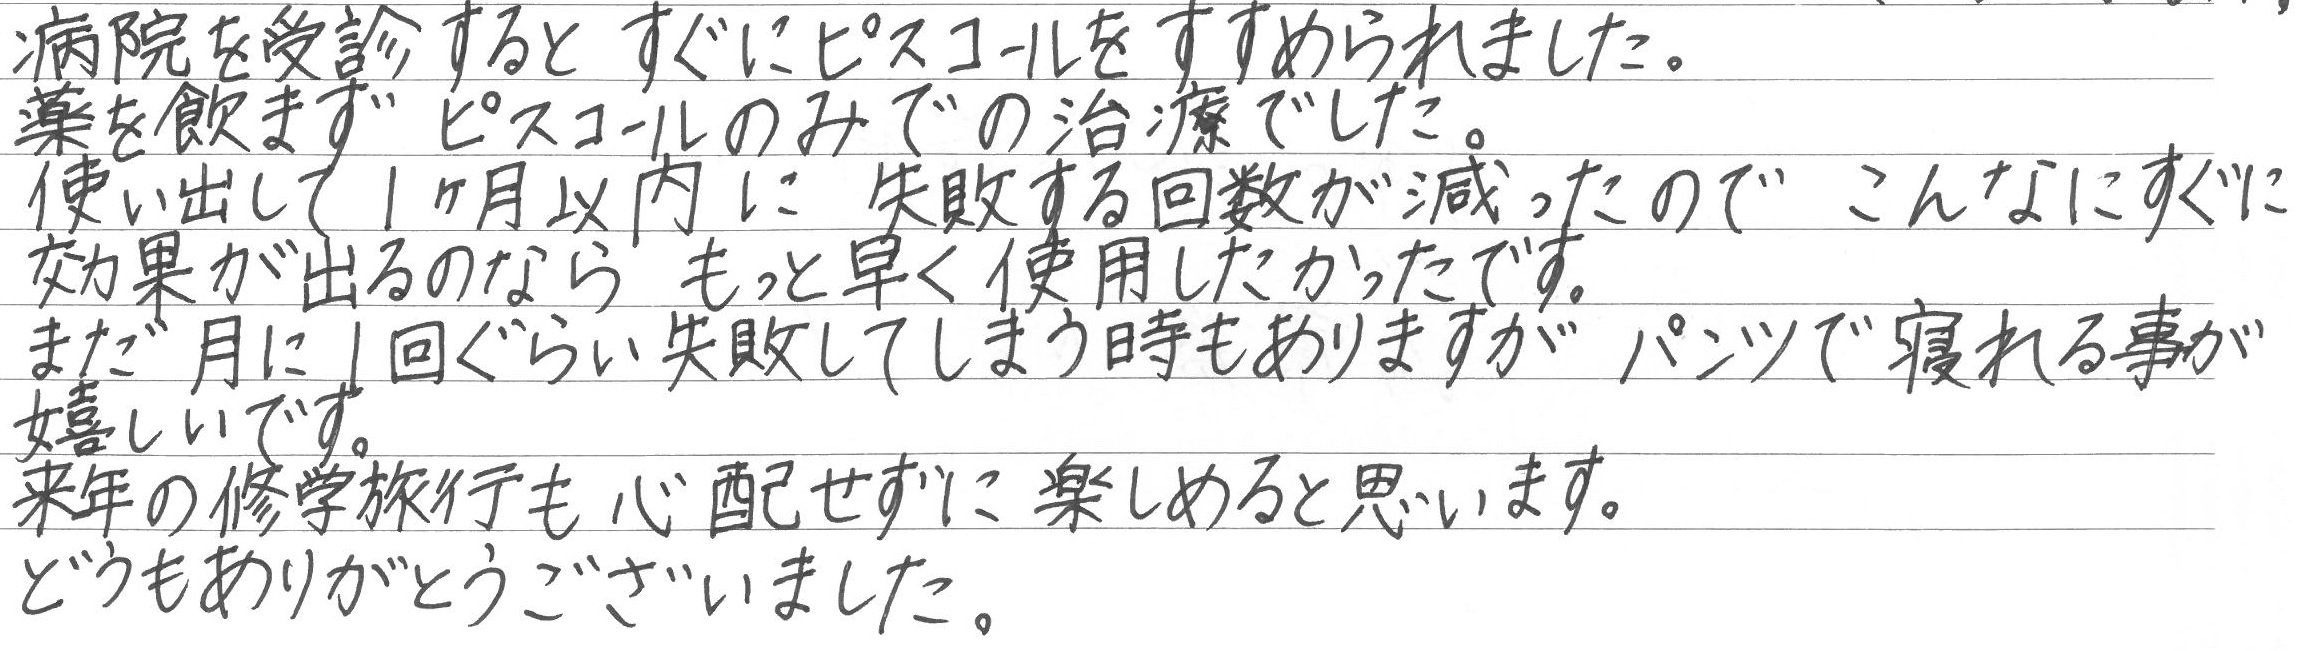 病院を受診すると すぐにピスコールをすすめられました。
薬を飲まず ピスコールのみでの治療でした。
使い出して1ヶ月以内に 失敗する回数が減ったので こんなにすぐに
効果が出るのなら もっと早く使用したかったです。
まだ 月に1回ぐらい失敗してしまう時もありますが パンツで寝れる事が
嬉しいです。
来年の修学旅行も心配せずに 楽しめると思います。
どうもありがとうございました。